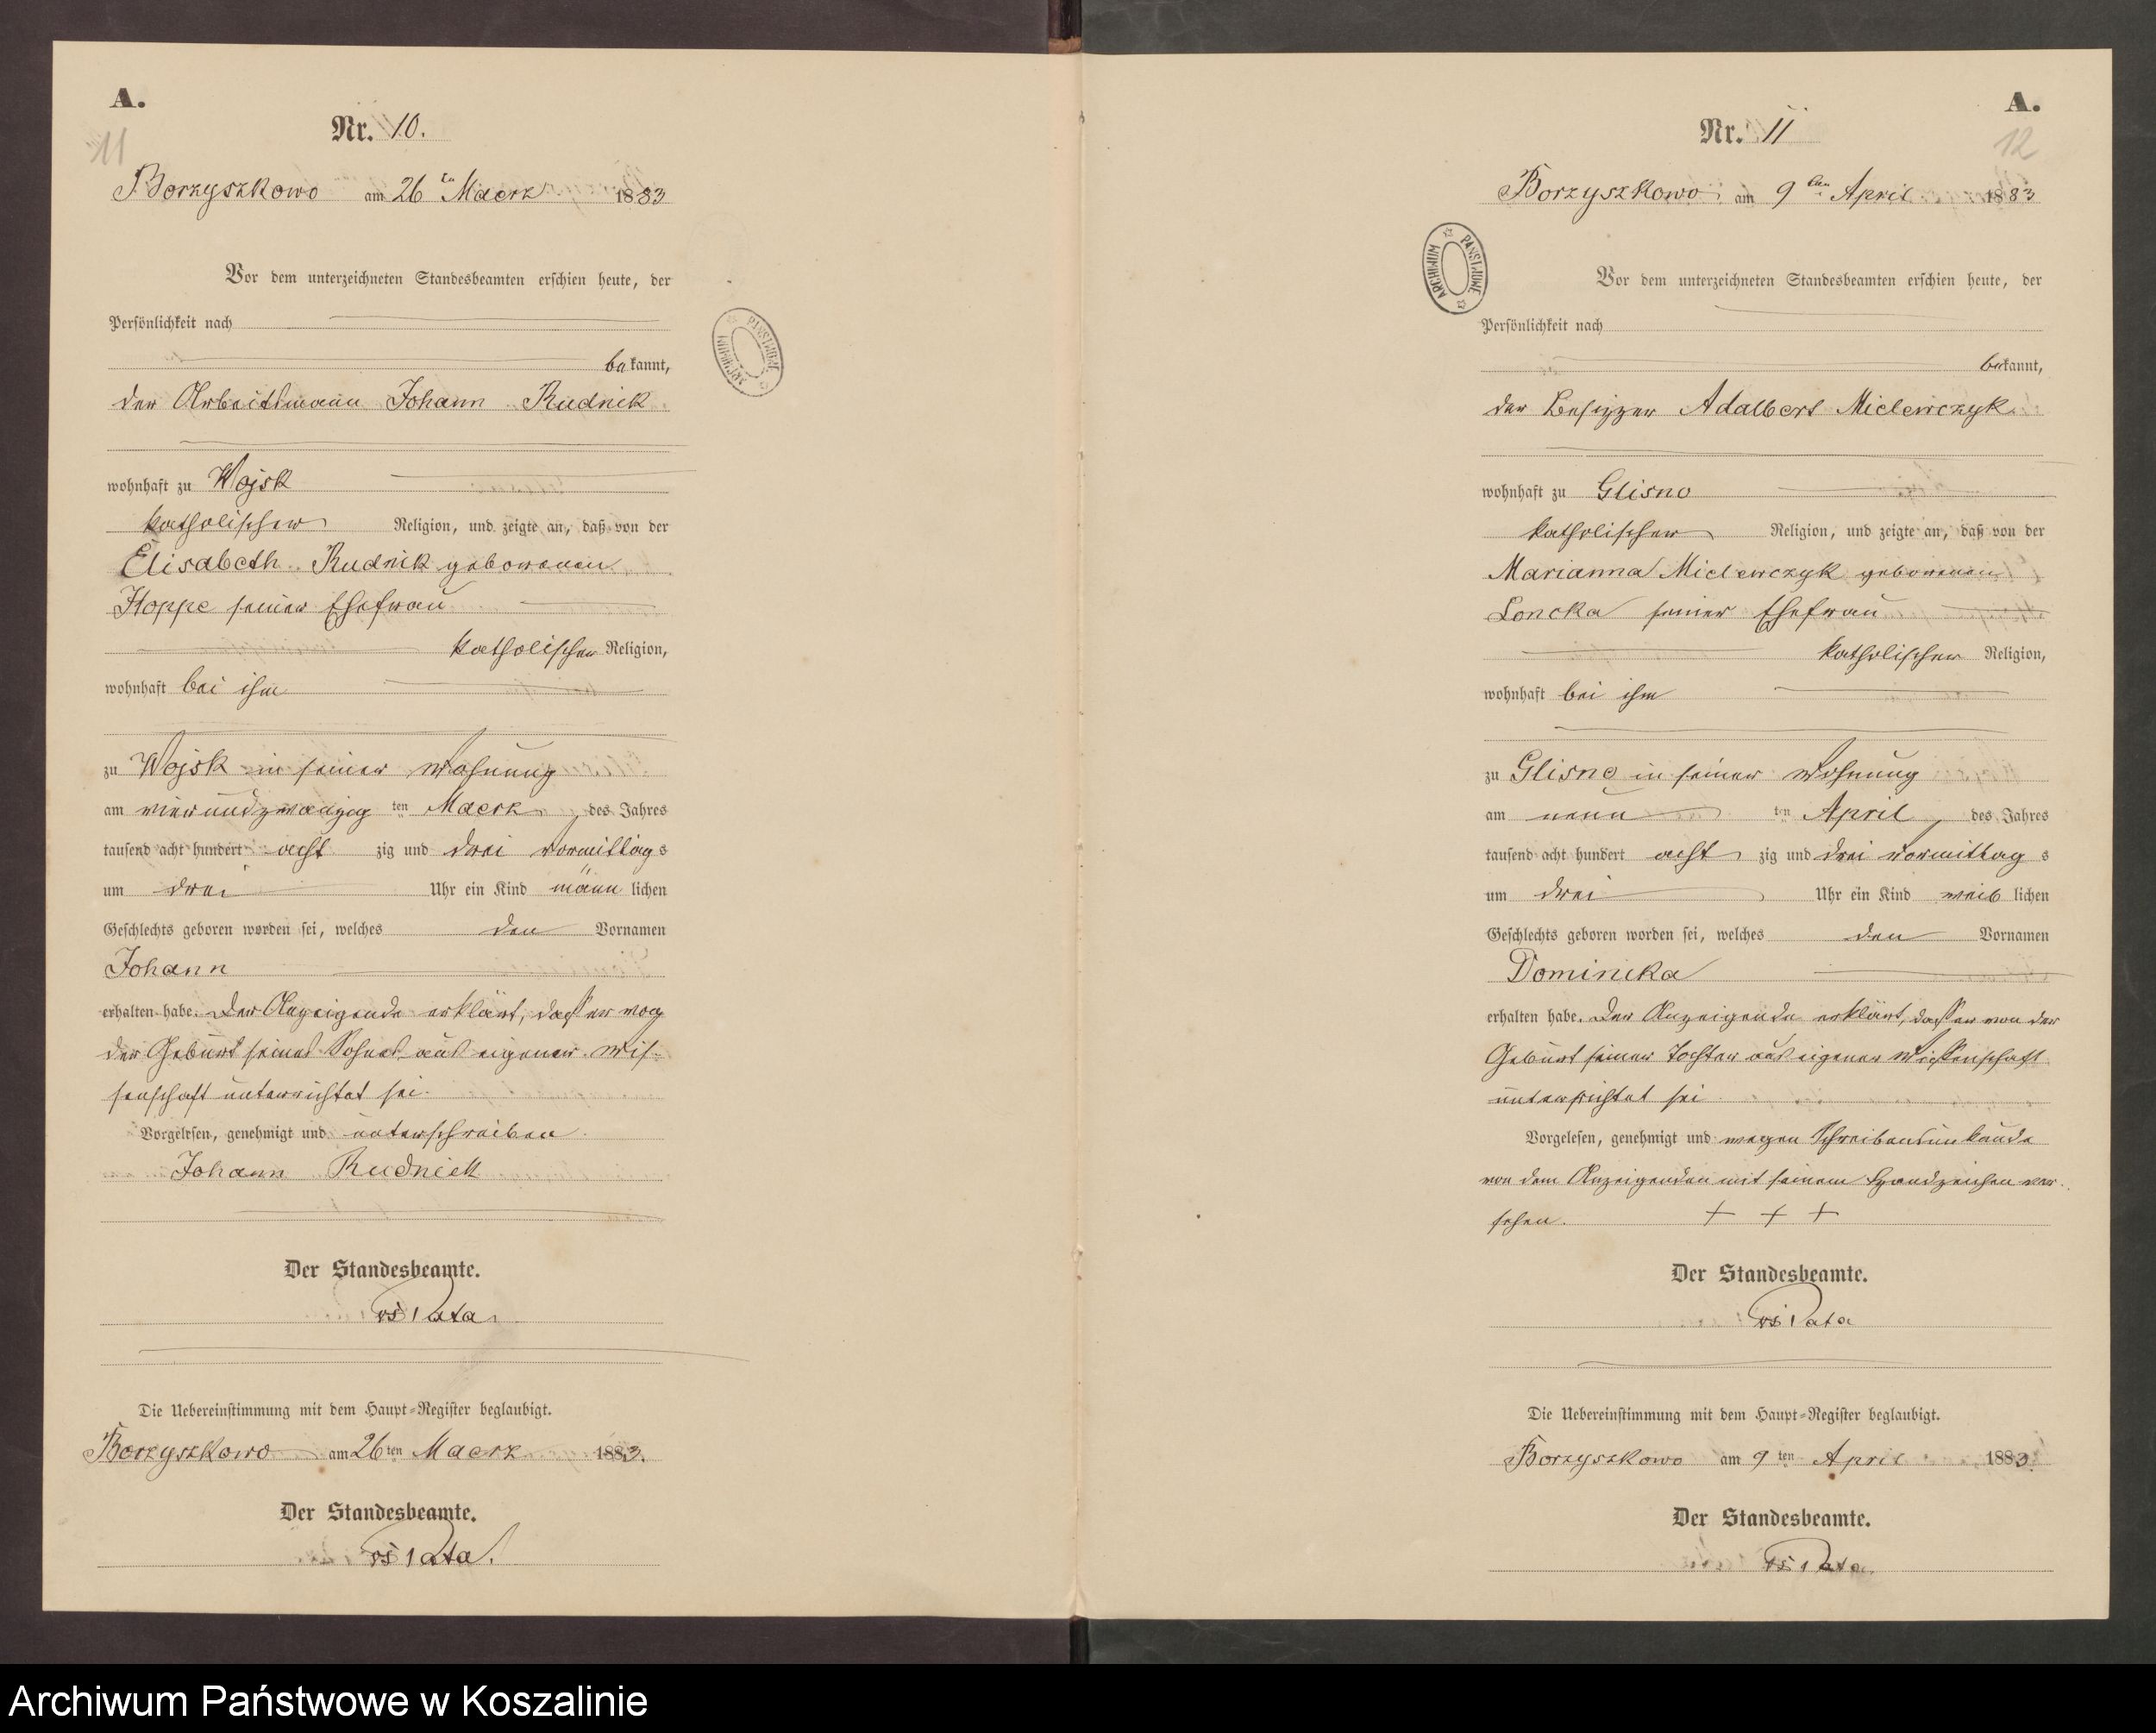 A.
11
Nr. 10.
Borzyszkowo am 26 ten Maerz 1883
Vor dem unterzeichneten Standesbeamten erschien heute, der
Persönlichkeit nach
bekannt,
der Arbeitsmann Johann Rudnik
wohnhaft zu Wojsk
katholischer Religion, und zeigte an, daß von der
Elisabeth Rudnik geborenen
Hoppe seiner Ehefrau
katholischer Religion,
wohnhaft bei ihm
zu Wojsk in seiner Wohnung
am vierundzwanzig ten Maerz des Jahres
tausend acht hundert acht zig und drei Vormittag s
um drei Uhr ein Kind männ lichen
Geschlechts geboren worden sei, welches den Vornamen
Johann
erhalten habe. Der Anzeigende erklärt, dass er von
der Geburt seines Sohnes aus eigener Wis-
senschaft unterrichtet sei.
Vorgelesen, genehmigt und unterschrieben.
Johann Rudnick
Der Standesbeamte.
Die Uebereinstimmung mit dem Haupt-Register beglaubigt.
Borzyszkowo am 26 ten Maerz 1883.
Der Standesbeamte.
ARCHIWUM PAŃSTWOWE
A.
12
Nr. 11
Borzyszkowo am 9 ten April 1883
Vor dem unterzeichneten Standesbeamten erschien heute, der
Persönlichkeit nach
bekannt,
der Besitzer Adalbert Mielewczyk
wohnhaft zu Glisno
katholischer Religion, und zeigte an, daß von der
Marianna Mielewczyk geborenen
Loncka seiner Ehefrau
katholischer Religion,
wohnhaft bei ihm
zu Glisno in seiner Wohnung
am neun ten April des Jahres
tausend acht hundert acht zig und drei Vormittag s
um drei Uhr ein Kind weib lichen
Geschlechts geboren worden sei, welches den Vornamen
Dominika
erhalten habe. Der Anzeigende erklärt, dass er von der
Geburt seiner Tochter aus eigener Wissenschaft
unterrichtet sei
Vorgelesen, genehmigt und wegen Schreibensunkunde
von dem Anzeigenden mit seinem Handzeichen ver-
sehen. + + +
Der Standesbeamte.
Die Uebereinstimmung mit dem Haupt-Register beglaubigt.
Borzyszkowo am 9 ten April 1883.
Der Standesbeamte.
ARCHIWUM PAŃSTWOWE
Archiwum Państwowe w Koszalinie